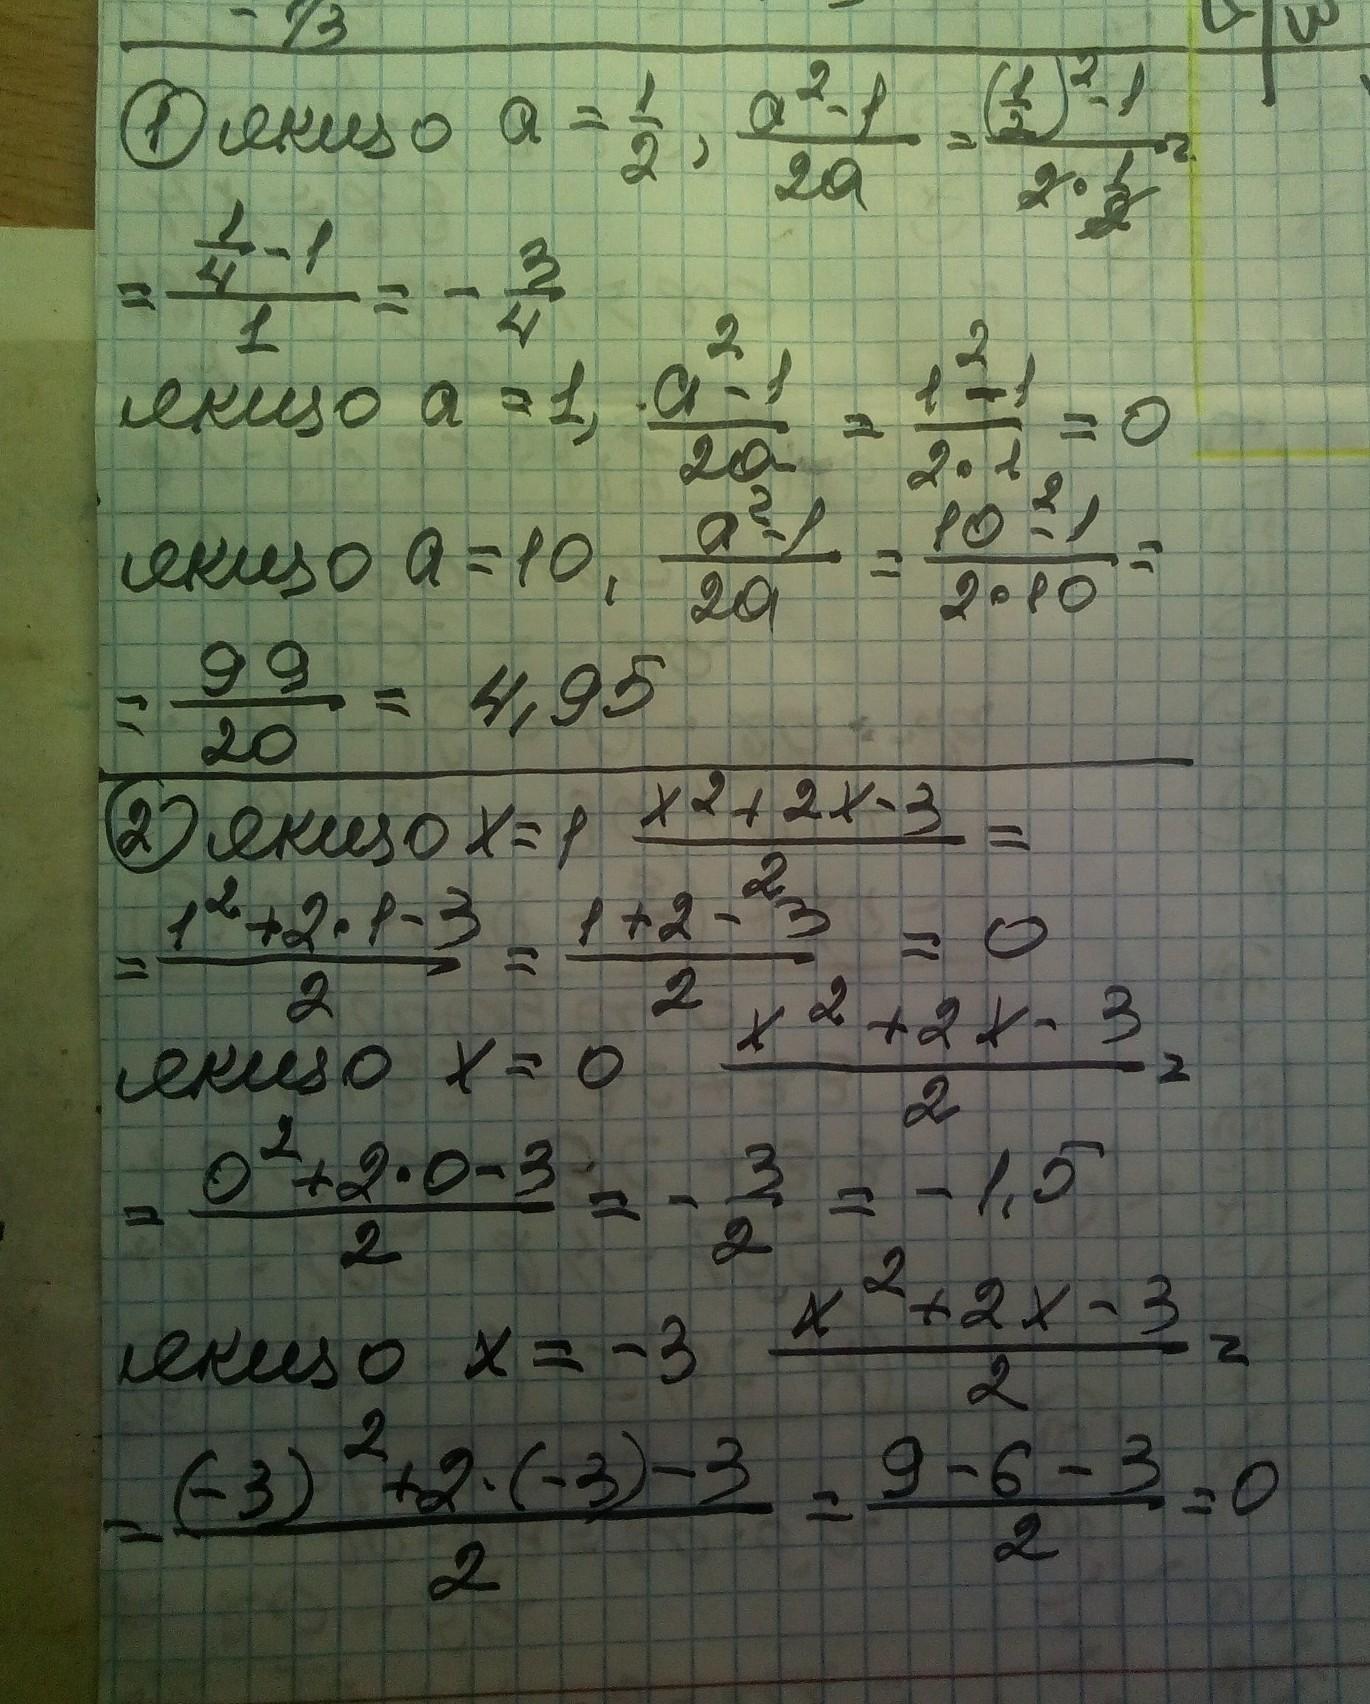 - 1/3
① якщо a = 1/2, (a²-1)/(2a) = ((1/2)²-1)/(2·1/2) =
= (1/4-1)/1 = -3/4
якщо a = 1, (a²-1)/(2a) = (1²-1)/(2·1) = 0
якщо a = 10, (a²-1)/(2a) = (10²-1)/(2·10) =
= 99/20 = 4,95
② якщо x = 1 (x²+2x-3)/2 =
= (1²+2·1-3)/2 = (1+2-3)/2 = 0
якщо x = 0 (x²+2x-3)/2 =
= (0²+2·0-3)/2 = -3/2 = -1,5
якщо x = -3 (x²+2x-3)/2 =
= ((-3)²+2·(-3)-3)/2 = (9-6-3)/2 = 0